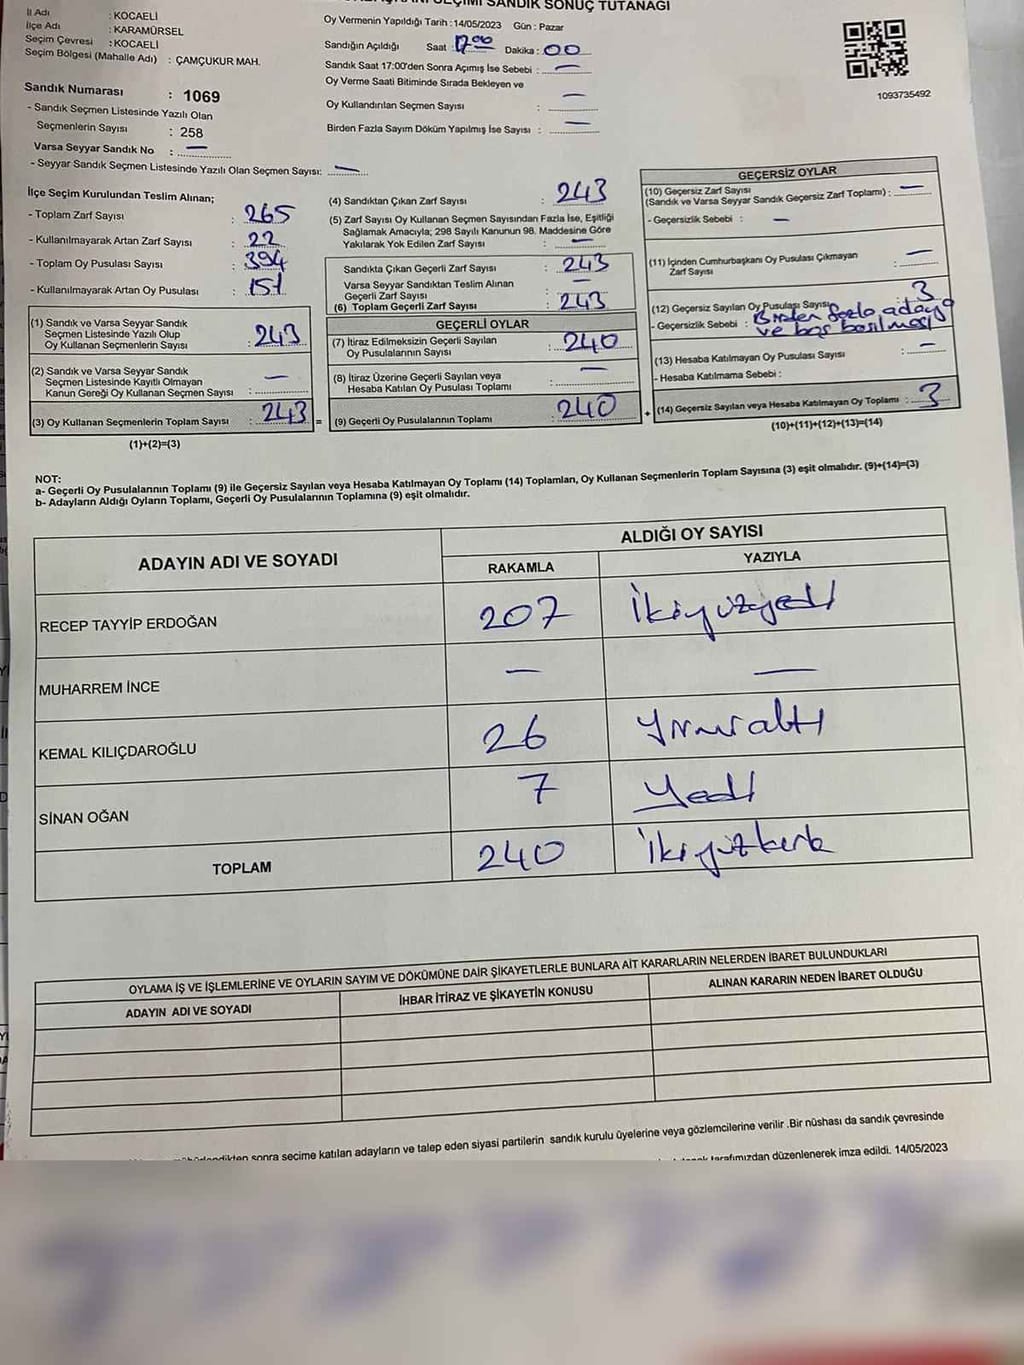 SANDIK SONUÇ TUTANAĞI
İl Adı : KOCAELİ
İlçe Adı : KARAMÜRSEL
Seçim Çevresi : KOCAELİ
Seçim Bölgesi (Mahalle Adı) : ÇAMÇUKUR MAH.
Sandık Numarası : 1069
- Sandık Seçmen Listesinde Yazılı Olan
Seçmenlerin Sayısı : 258
Varsa Seyyar Sandık No : —
- Seyyar Sandık Seçmen Listesinde Yazılı Olan Seçmen Sayısı: —
Oy Vermenin Yapıldığı Tarih :14/05/2023 Gün : Pazar
Sandığın Açıldığı Saat : 17:00 Dakika : 00
Sandık Saat 17:00'den Sonra Açımış İse Sebebi : —
Oy Verme Saati Bitiminde Sırada Bekleyen ve
Oy Kullandırılan Seçmen Sayısı : —
Birden Fazla Sayım Döküm Yapılmış İse Sayısı : —
1093735492
İlçe Seçim Kurulundan Teslim Alınan;
- Toplam Zarf Sayısı : 265
- Kullanılmayarak Artan Zarf Sayısı : 22
- Toplam Oy Pusulası Sayısı : 394
- Kullanılmayarak Artan Oy Pusulası : 151
(1) Sandık ve Varsa Seyyar Sandık
Seçmen Listesinde Yazılı Olup
Oy Kullanan Seçmenlerin Sayısı : 243
(2) Sandık ve Varsa Seyyar Sandık
Seçmen Listesinde Kayıtlı Olmayan
Kanun Gereği Oy Kullanan Seçmen Sayısı : —
(3) Oy Kullanan Seçmenlerin Toplam Sayısı : 243 =
(1)+(2)=(3)
(4) Sandıktan Çıkan Zarf Sayısı : 243
(5) Zarf Sayısı Oy Kullanan Seçmen Sayısından Fazla İse, Eşitliği
Sağlamak Amacıyla; 298 Sayılı Kanunun 98. Maddesine Göre
Yakılarak Yok Edilen Zarf Sayısı : —
Sandıkta Çıkan Geçerli Zarf Sayısı : 243
Varsa Seyyar Sandıktan Teslim Alınan
Geçerli Zarf Sayısı : —
(6) Toplam Geçerli Zarf Sayısı : 243
GEÇERLİ OYLAR
(7) İtiraz Edilmeksizin Geçerli Sayılan
Oy Pusulalarının Sayısı : 240
(8) İtiraz Üzerine Geçerli Sayılan veya
Hesaba Katılan Oy Pusulası Toplamı : —
(9) Geçerli Oy Pusulalarının Toplamı : 240 +
GEÇERSİZ OYLAR
(10) Geçersiz Zarf Sayısı
(Sandık ve Varsa Seyyar Sandık Geçersiz Zarf Toplamı) : —
- Geçersizlik Sebebi : —
(11) İçinden Cumhurbaşkanı Oy Pusulası Çıkmayan
Zarf Sayısı : —
(12) Geçersiz Sayılan Oy Pusulası Sayısı : 3
- Geçersizlik Sebebi : Birden fazla adaya
ve boş basılması
(13) Hesaba Katılmayan Oy Pusulası Sayısı : —
- Hesaba Katılmama Sebebi :
(14) Geçersiz Sayılan veya Hesaba Katılmayan Oy Toplamı : 3
(10)+(11)+(12)+(13)=(14)
NOT:
a- Geçerli Oy Pusulalarının Toplamı (9) ile Geçersiz Sayılan veya Hesaba Katılmayan Oy Toplamı (14) Toplamları, Oy Kullanan Seçmenlerin Toplam Sayısına (3) eşit olmalıdır. (9)+(14)=(3)
b- Adayların Aldığı Oyların Toplamı, Geçerli Oy Pusulalarının Toplamına (9) eşit olmalıdır.
ADAYIN ADI VE SOYADI ALDIĞI OY SAYISI
RAKAMLA YAZIYLA
RECEP TAYYİP ERDOĞAN 207 İkiyüzyedi
MUHARREM İNCE — —
KEMAL KILIÇDAROĞLU 26 Yirmialtı
SİNAN OĞAN 7 Yedi
TOPLAM 240 İkiyüzkırk
OYLAMA İŞ VE İŞLEMLERİNE VE OYLARIN SAYIM VE DÖKÜMÜNE DAİR ŞİKAYETLERLE BUNLARA AİT KARARLARIN NELERDEN İBARET BULUNDUKLARI
ADAYIN ADI VE SOYADI İHBAR İTİRAZ VE ŞİKAYETİN KONUSU ALINAN KARARIN NEDEN İBARET OLDUĞU
sonra seçime katılan adayların ve talep eden siyasi partilerin sandık kurulu üyelerine veya gözlemcilerine verilir .Bir nüshası da sandık çevresinde
tarafımızdan düzenlenerek imza edildi. 14/05/2023